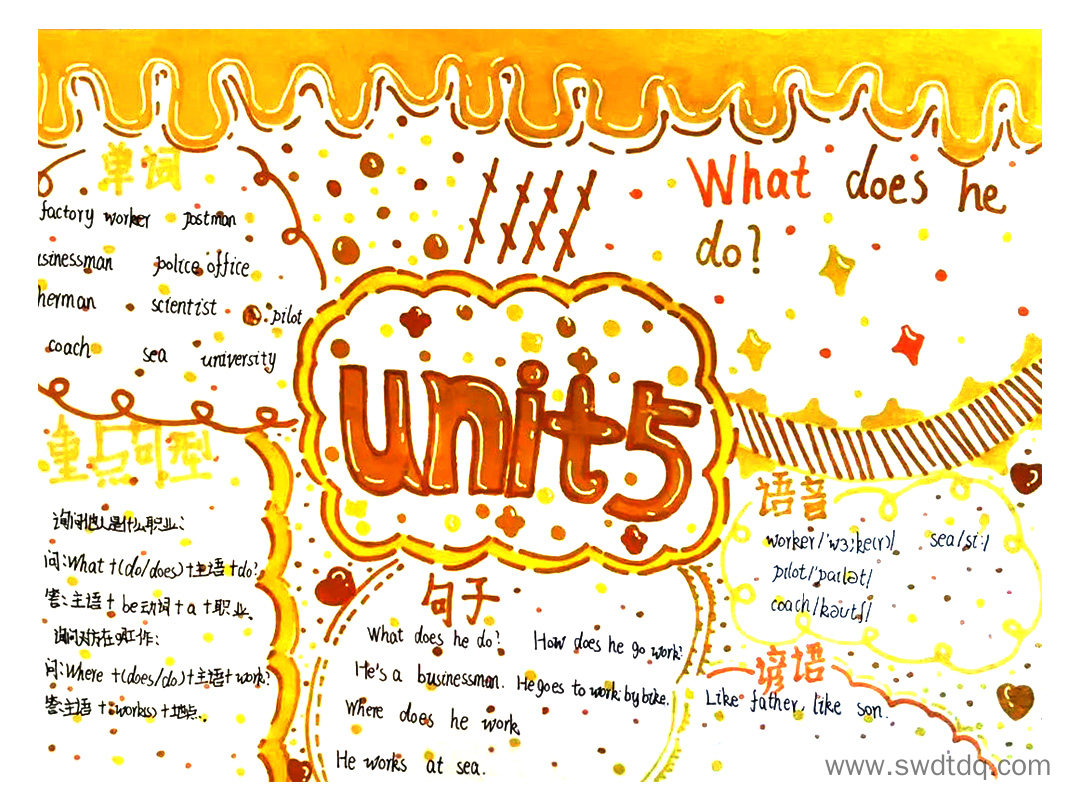 What does he
do?
单词
factory worker postman
usinessman police office
herman scientist pilot
coach sea university
unit5
重点句型
询问他人是什么职业:
问:What+(do/does)+主语+do?
答:主语+be动词+a+职业.
询问对方在哪工作:
问:Where+(does/do)+主语+work?
答:主语+work(s)+地点.
句子
What does he do? How does he go work?
He's a businessman. He goes to work by bike.
Where does he work
He works at sea.
语音
worker/'wɜ:ke(r)/ sea/si:/
pilot/'paɪlət/
coach/kəʊtʃ/
谚语
Like father, like son.
www.swdtdq.com